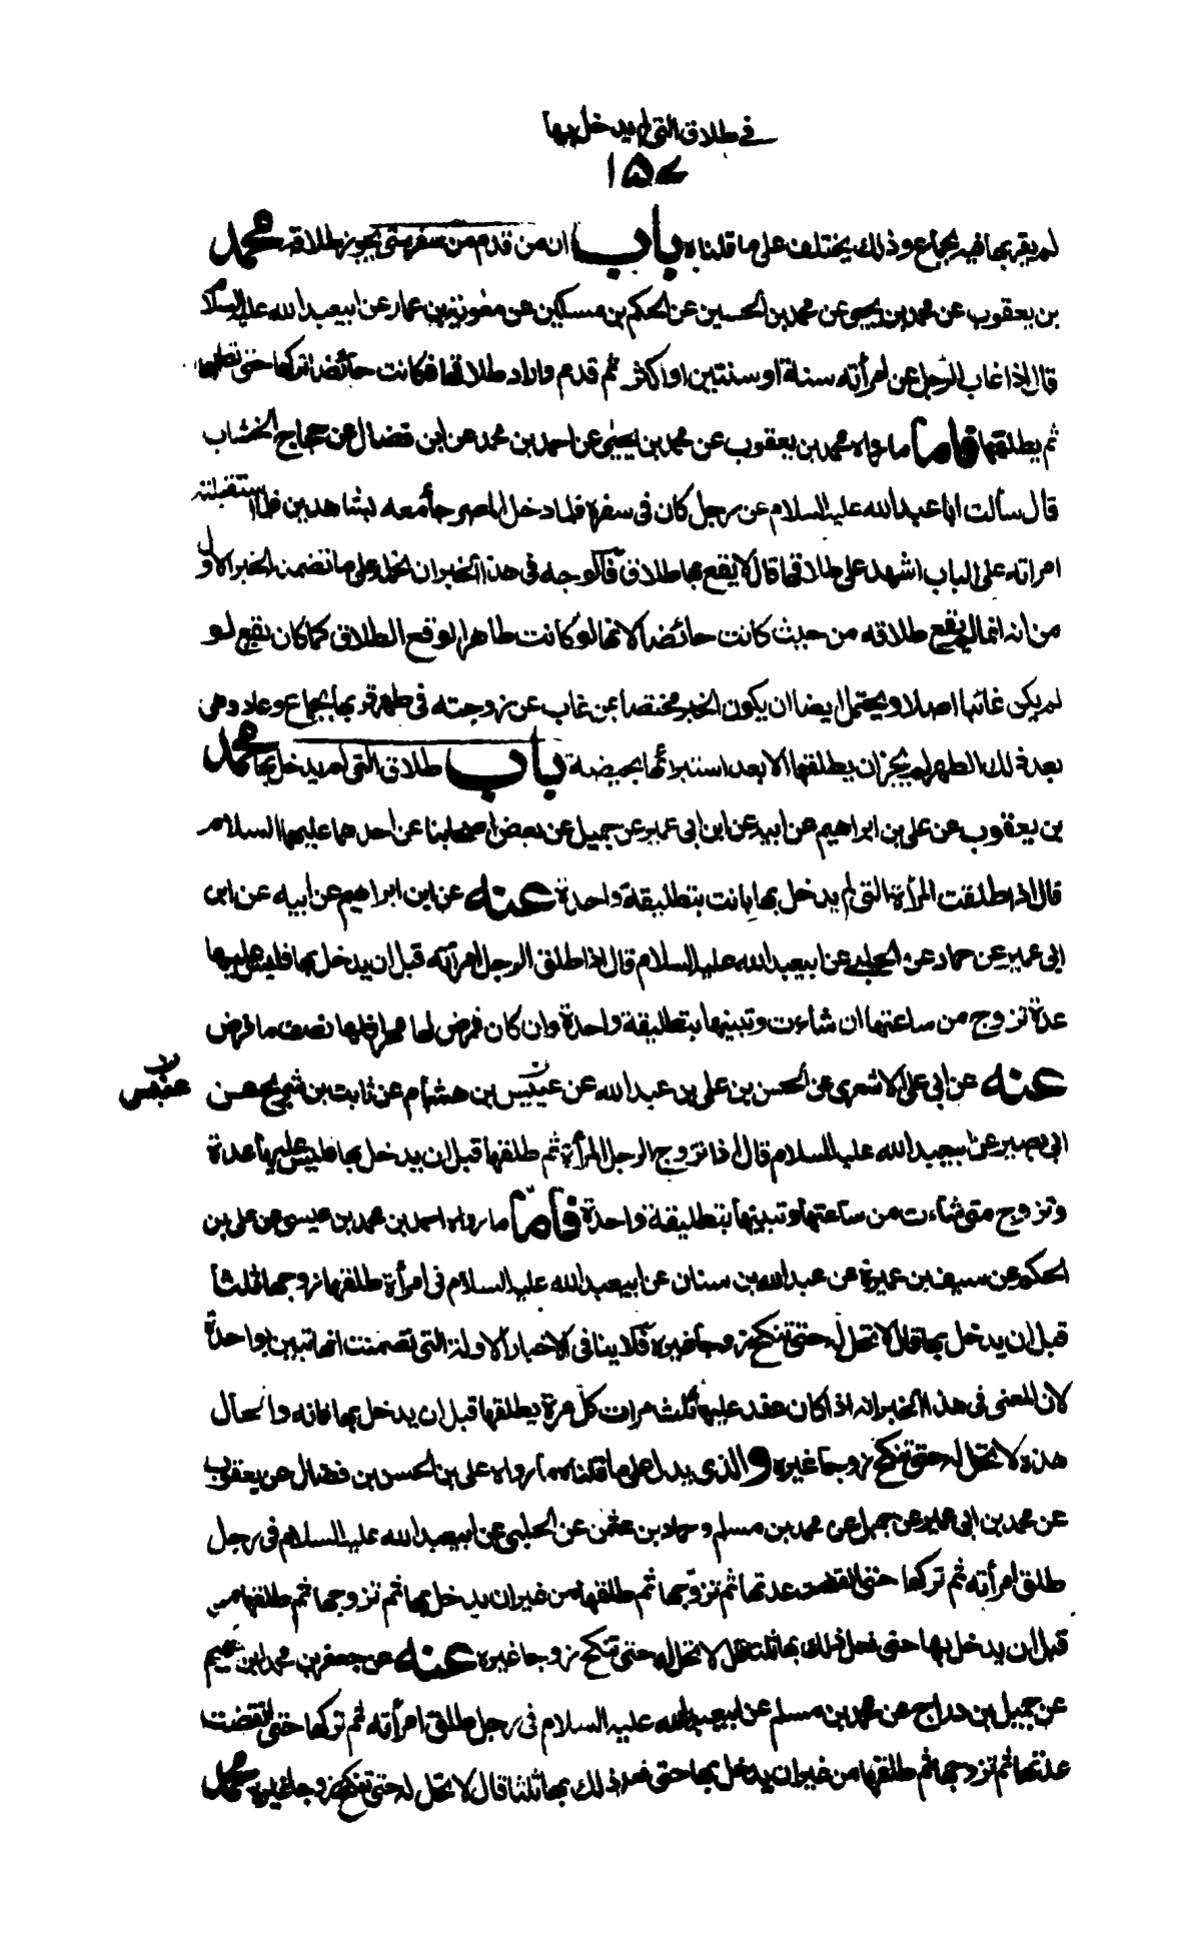 في طلاق التي لم يدخل بها
١٥٧
لم يقربها فيه بجماع وذلك يختلف على ما قلناه باب ان من قدم من سفر متى يجوز طلاقه محمد
بن يعقوب عن محمد بن يحيى عن محمد بن الحسين عن الحكم بن مسكين عن معوية بن عمار عن ابيعبد الله عليه السلام
قال اذا غاب الرجل عن امرأته سنة او سنتين او اكثر ثم قدم واراد طلاقها فكانت حائضا تركها حتى تطهر
ثم يطلقها فاما ما رواه محمد بن يعقوب عن محمد بن يحيى عن احمد بن محمد عن ابن فضال عن حجاج الخشاب
قال سألت ابا عبد الله عليه السلام عن رجل كان في سفره فلما دخل المصر جاء معه بشاهدين فلما استقبلته
امراته على الباب اشهد على طلاقها قال لا يقع بها طلاق فالوجه في هذا الخبر ان نحمله على ما تضمن الخبر الاول
من انه انما لم يقع طلاقه من حيث كانت حائضا لانها لو كانت طاهرا لوقع الطلاق كما كان يقع لو
لم يكن غائبا اصلا ويحتمل ايضا ان يكون الخبر مختصا بمن غاب عن زوجته في طهر قربها بجماع وعاد وهي
بعد في ذلك الطهر لم يجز ان يطلقها الا بعد استبرائها بحيضة باب طلاق التي لم يدخل بها محمد
بن يعقوب عن علي بن ابراهيم عن ابيه عن ابن ابي عمير عن جميل عن بعض اصحابنا عن احدهما عليهما السلام
قال اذا طلقت المرأة التي لم يدخل بها بانت بتطليقة واحدة عنه عن ابن ابراهيم عن ابيه عن ابن
ابي عمير عن حماد عن الحلبي عن ابيعبد الله عليه السلام قال اذا طلق الرجل امرأته قبل ان يدخل بها فليس عليها
عدة تزوج من ساعتها ان شاءت وتبينها بتطليقة واحدة وان كان فرض لها مهرا فلها نصف ما فرض
عنه عن ابي علي الاشعري عن الحسن بن علي بن عبد الله عن عبيس بن هشام عن ثابت بن شريح عن
عنبس
ابي بصير عن ابيعبد الله عليه السلام قال اذا تزوج الرجل المرأة ثم طلقها قبل ان يدخل بها فليس عليها عدة
وتزوج متى شاءت من ساعتها وتبينها بتطليقة واحدة فاما ما رواه احمد بن محمد بن عيسى عن علي بن
الحكم عن سيف بن عميرة عن عبد الله بن سنان عن ابيعبد الله عليه السلام في امرأة طلقها زوجها ثلثا
قبل ان يدخل بها قال لا تحل له حتى تنكح زوجا غيره فلا ينافي الاخبار الاولة التي تضمنت انها تبين بواحدة
لان المعنى في هذا الخبر انه اذا كان عقد عليها ثلث مرات كل مرة يطلقها قبل ان يدخل بها فانه والحال
هذه لا تحل له حتى تنكح زوجا غيره والذي يدل على ما قلناه ما رواه علي بن الحسن بن فضال عن يعقوب
عن محمد بن ابي عمير عن جميل عن محمد بن مسلم وحماد بن عثمن عن الحلبي عن ابيعبد الله عليه السلام في رجل
طلق امرأته ثم تركها حتى انقضت عدتها ثم تزوجها ثم طلقها من غير ان يدخل بها ثم تزوجها ثم طلقها من
قبل ان يدخل بها حتى فعل ذلك بها ثلثا قال لا تحل له حتى تنكح زوجا غيره عنه عن جعفر بن محمد بن حكيم
عن جميل بن دراج عن محمد بن مسلم عن ابيعبد الله عليه السلام في رجل طلق امرأته ثم تركها حتى انقضت
عدتها ثم تزوجها ثم طلقها من غير ان يدخل بها حتى فعل ذلك بها ثلثا قال لا تحل له حتى تنكح زوجا غيره محمد